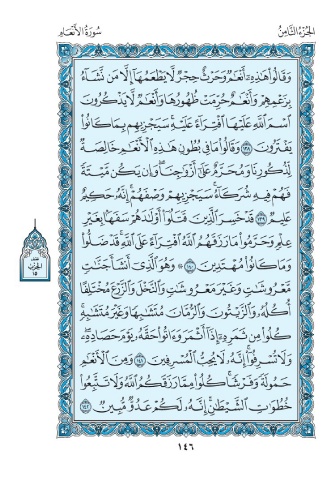 الجزء الثامن
سورة الأنعام
وَقَالُوا۟ هَٰذِهِۦٓ أَنْعَٰمٌ وَحَرْثٌ حِجْرٌ لَّا يَطْعَمُهَآ إِلَّا مَن نَّشَآءُ
بِزَعْمِهِمْ وَأَنْعَٰمٌ حُرِّمَتْ ظُهُورُهَا وَأَنْعَٰمٌ لَّا يَذْكُرُونَ
ٱسْمَ ٱللَّهِ عَلَيْهَا ٱفْتِرَآءً عَلَيْهِ ۚ سَيَجْزِيهِم بِمَا كَانُوا۟
يَفْتَرُونَ ١٣٨ وَقَالُوا۟ مَا فِى بُطُونِ هَٰذِهِ ٱلْأَنْعَٰمِ خَالِصَةٌ
لِّذُكُورِنَا وَمُحَرَّمٌ عَلَىٰٓ أَزْوَٰجِنَا ۖ وَإِن يَكُن مَّيْتَةً
فَهُمْ فِيهِ شُرَكَآءُ ۚ سَيَجْزِيهِمْ وَصْفَهُمْ ۚ إِنَّهُۥ حَكِيمٌ
عَلِيمٌ ١٣٩ قَدْ خَسِرَ ٱلَّذِينَ قَتَلُوٓا۟ أَوْلَٰدَهُمْ سَفَهًۢا بِغَيْرِ
عِلْمٍ وَحَرَّمُوا۟ مَا رَزَقَهُمُ ٱللَّهُ ٱفْتِرَآءً عَلَى ٱللَّهِ ۚ قَدْ ضَلُّوا۟
وَمَا كَانُوا۟ مُهْتَدِينَ ١٤٠ ۞ وَهُوَ ٱلَّذِىٓ أَنشَأَ جَنَّٰتٍ
مَّعْرُوشَٰتٍ وَغَيْرَ مَعْرُوشَٰتٍ وَٱلنَّخْلَ وَٱلزَّرْعَ مُخْتَلِفًا
أُكُلُهُۥ وَٱلزَّيْتُونَ وَٱلرُّمَّانَ مُتَشَٰبِهًا وَغَيْرَ مُتَشَٰبِهٍ ۚ
كُلُوا۟ مِن ثَمَرِهِۦٓ إِذَآ أَثْمَرَ وَءَاتُوا۟ حَقَّهُۥ يَوْمَ حَصَادِهِۦ ۖ
وَلَا تُسْرِفُوٓا۟ ۚ إِنَّهُۥ لَا يُحِبُّ ٱلْمُسْرِفِينَ ١٤١ وَمِنَ ٱلْأَنْعَٰمِ
حَمُولَةً وَفَرْشًا ۚ كُلُوا۟ مِمَّا رَزَقَكُمُ ٱللَّهُ وَلَا تَتَّبِعُوا۟
خُطُوَٰتِ ٱلشَّيْطَٰنِ ۚ إِنَّهُۥ لَكُمْ عَدُوٌّ مُّبِينٌ ١٤٢
نصف
الحزب
١٥
١٤٦